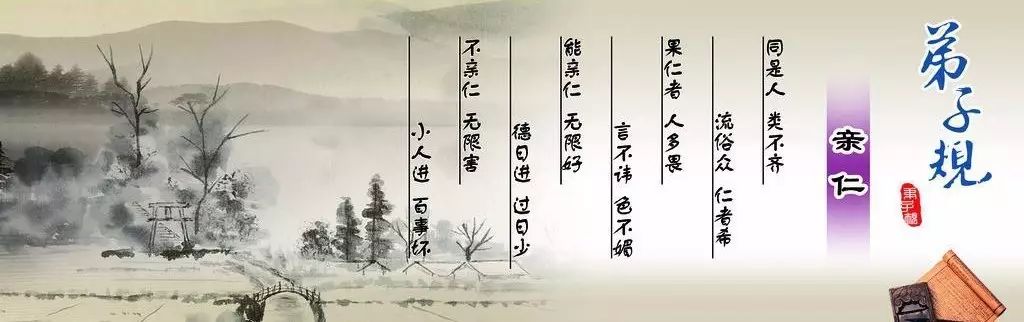 弟子规
亲仁
同是人 类不齐
流俗众 仁者希
果仁者 人多畏
言不讳 色不媚
能亲仁 无限好
德日进 过日少
不亲仁 无限害
小人进 百事坏